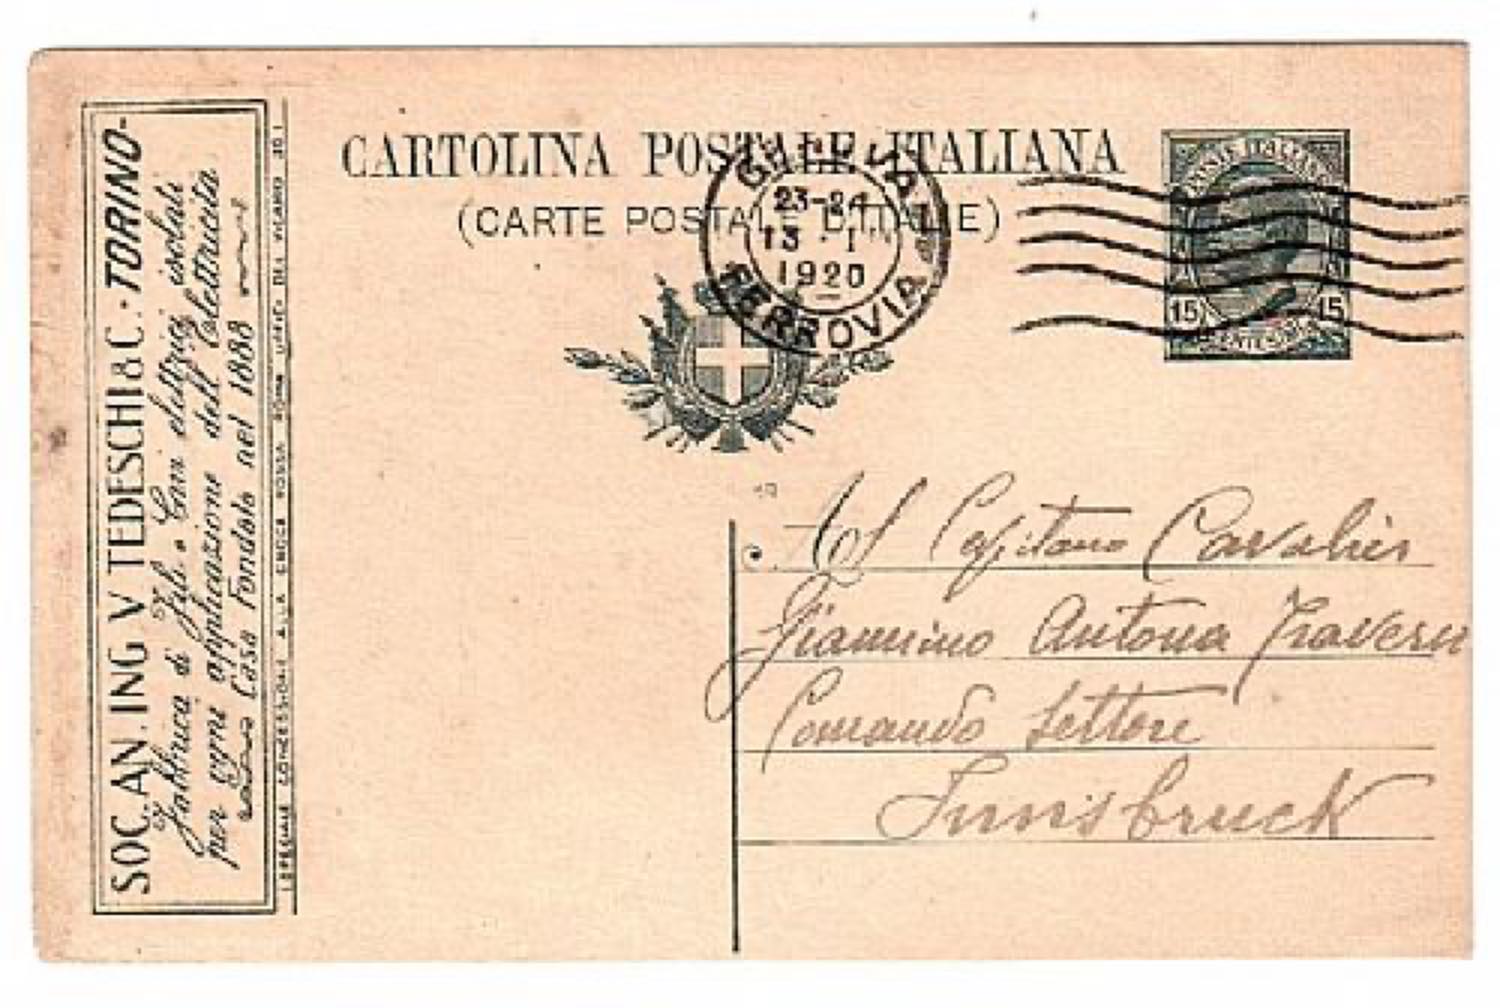 CARTOLINA POSTALE ITALIANA
(CARTE POSTALE D'ITALIE)
23-24
13 · I
1920
FERROVIA
POSTE ITALIANE
15 15
CENTESIMI
SOC. AN. ING V TEDESCHI & C. · TORINO-
Fabbrica di Fili e Cavi elettrici isolati
per ogni applicazione dell'elettricità
Casa Fondata nel 1888
SPECIALE CONCESSIONE ALLA CROCE ROSSA ROMA UFFICI DEL VICARIO
Al Capitano Cavalier
Giannino Antona Traversi
Comando Settore
Innsbruck